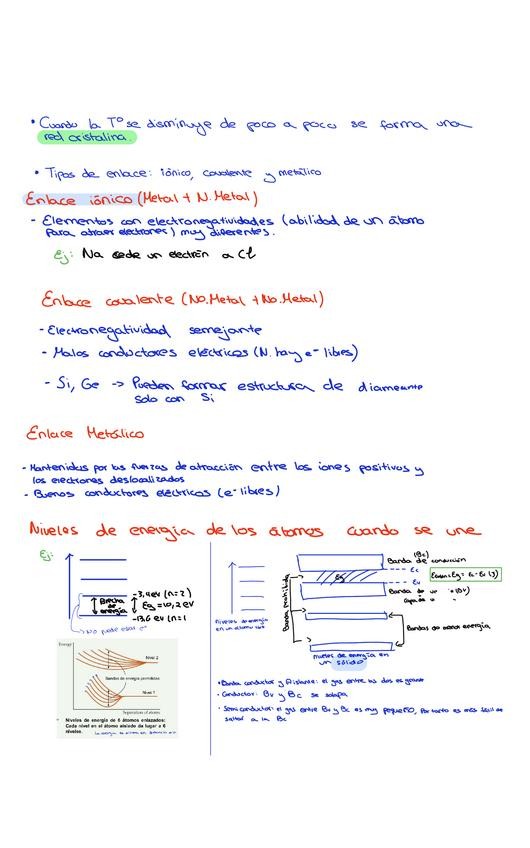 • Cuando la Tº se disminuye de poco a poco se forma una
red cristalina.
• Tipos de enlace: iónico, covalente y metálico
Enlace iónico (Metal + N.Metal)
- Elementos con electronegatividades (abilidad de un átomo
para atraer electrones) muy diferentes.
Ej: Na sede un electrón a Cl
Enlace covalente (No.Metal + No.Metal)
- Electronegatividad semejante
- Malos conductores eléctricos (N. hay e- libres)
- Si, Ge -> Pueden formar estructura de diamante
solo con Si
Enlace Metálico
- Mantenidas por las fuerzas de atracción entre los iones positivos y
los electrones deslocalizados
- Buenos conductores eléctricos (e- libres)
Niveles de energía de los átomos cuando se une
Ej:
-3,4 eV (n=2)
Brecha de energía
Eg = 10,2 eV
-13,6 eV (n=1
-> No puede estar e-
Energy
Nivel 2
Bandas de energía permitidas
Nivel 1
Separation of atoms
Niveles de energía de 6 átomos enlazados:
Cada nivel en el átomo aislado da lugar a 6
niveles.
Niveles de energía
en un átomo
Banda prohibida
(Bc)
Banda de conducción
Ec
Eg
Ev
Banda de
Bandas de menor energía
niveles de energía en
un sólido
• Banda conductor y Aislante: el gas entre las dos es grande
• Conductor: Bv y Bc se solapa
• Semiconductor: el gas entre Bv y Bc es muy pequeño, Por tanto es más fácil de
saltar a la Bc